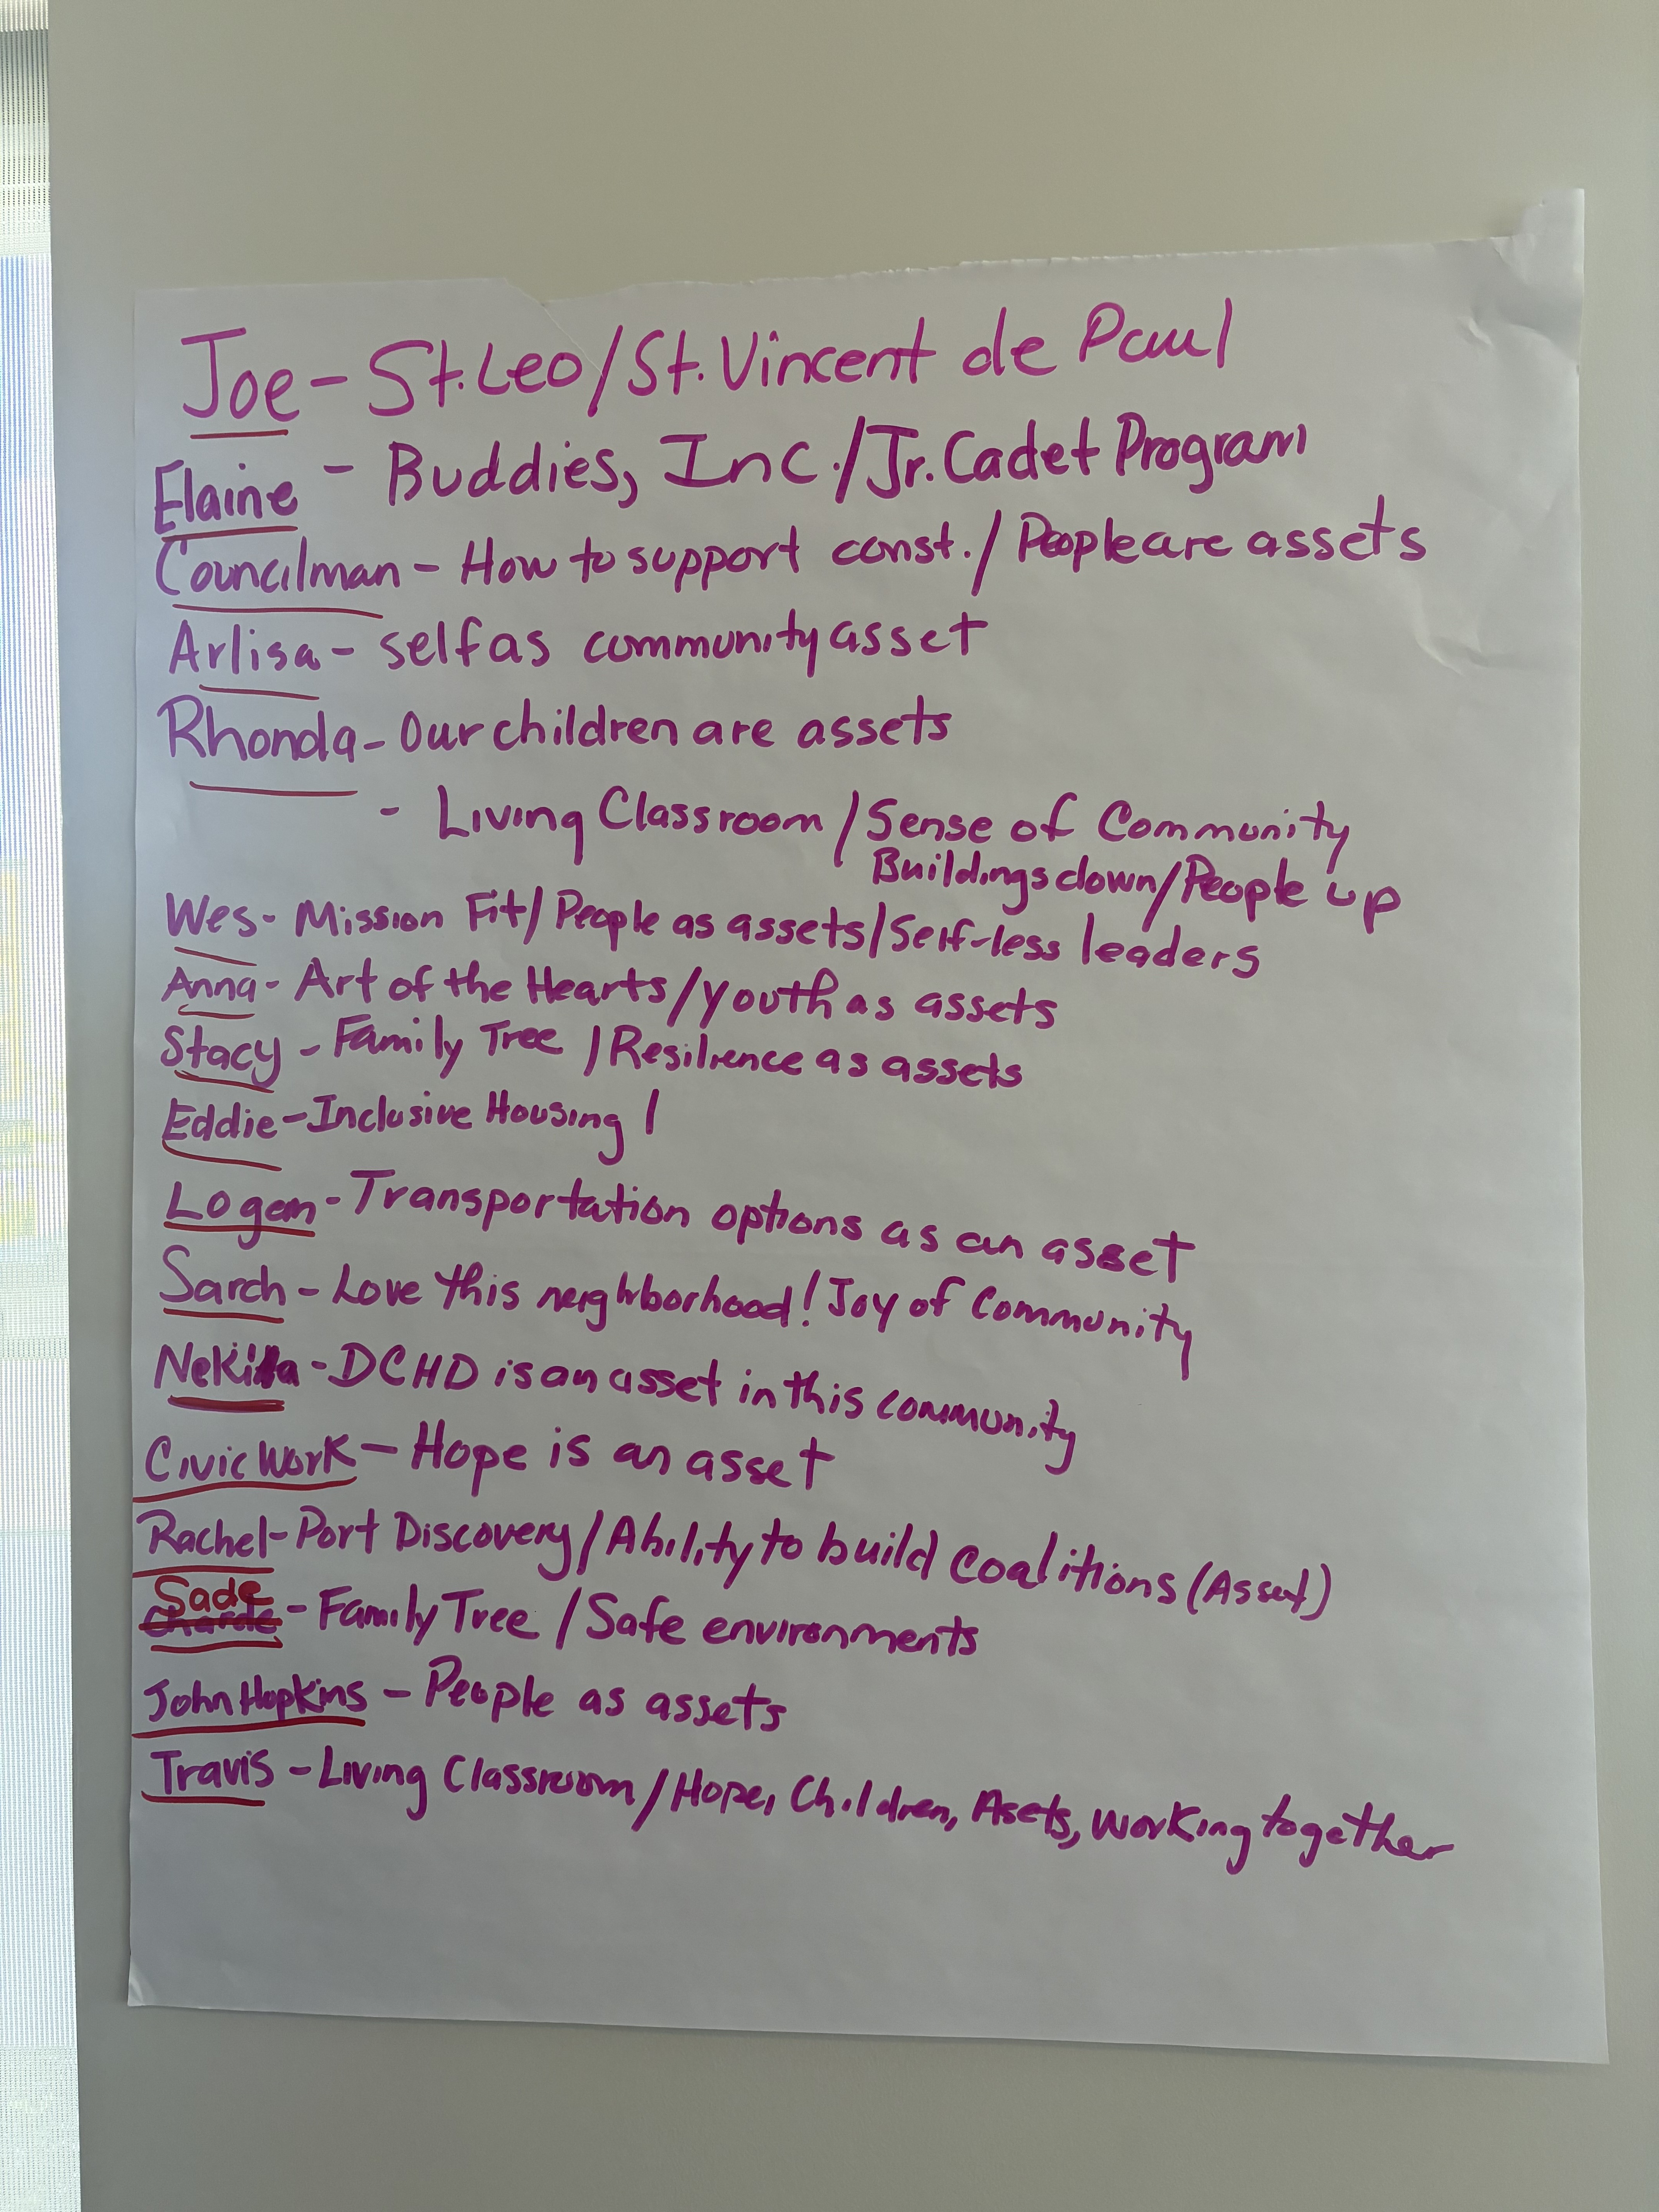 Joe - St. Leo / St. Vincent de Paul
Elaine - Buddies, Inc. / Jr. Cadet Program
Councilman - How to support const. / People are assets
Arlisa - self as community asset
Rhonda - Our children are assets
- Living Classroom / Sense of Community
Buildings down / People up
Wes - Mission Fit / People as assets / Self-less leaders
Anna - Art of the Hearts / Youth as assets
Stacy - Family Tree / Resilience as assets
Eddie - Inclusive Housing /
Logan - Transportation options as an asset
Sarah - Love this neighborhood! Joy of Community
- DCHD is an asset in this community
Civic Work - Hope is an asset
Rachel - Port Discovery / Ability to build Coalitions (Asset)
Sade
Charde - Family Tree / Safe environments
John Hopkins - People as assets
Travis - Living Classroom / Hope, Children, Asets, working together